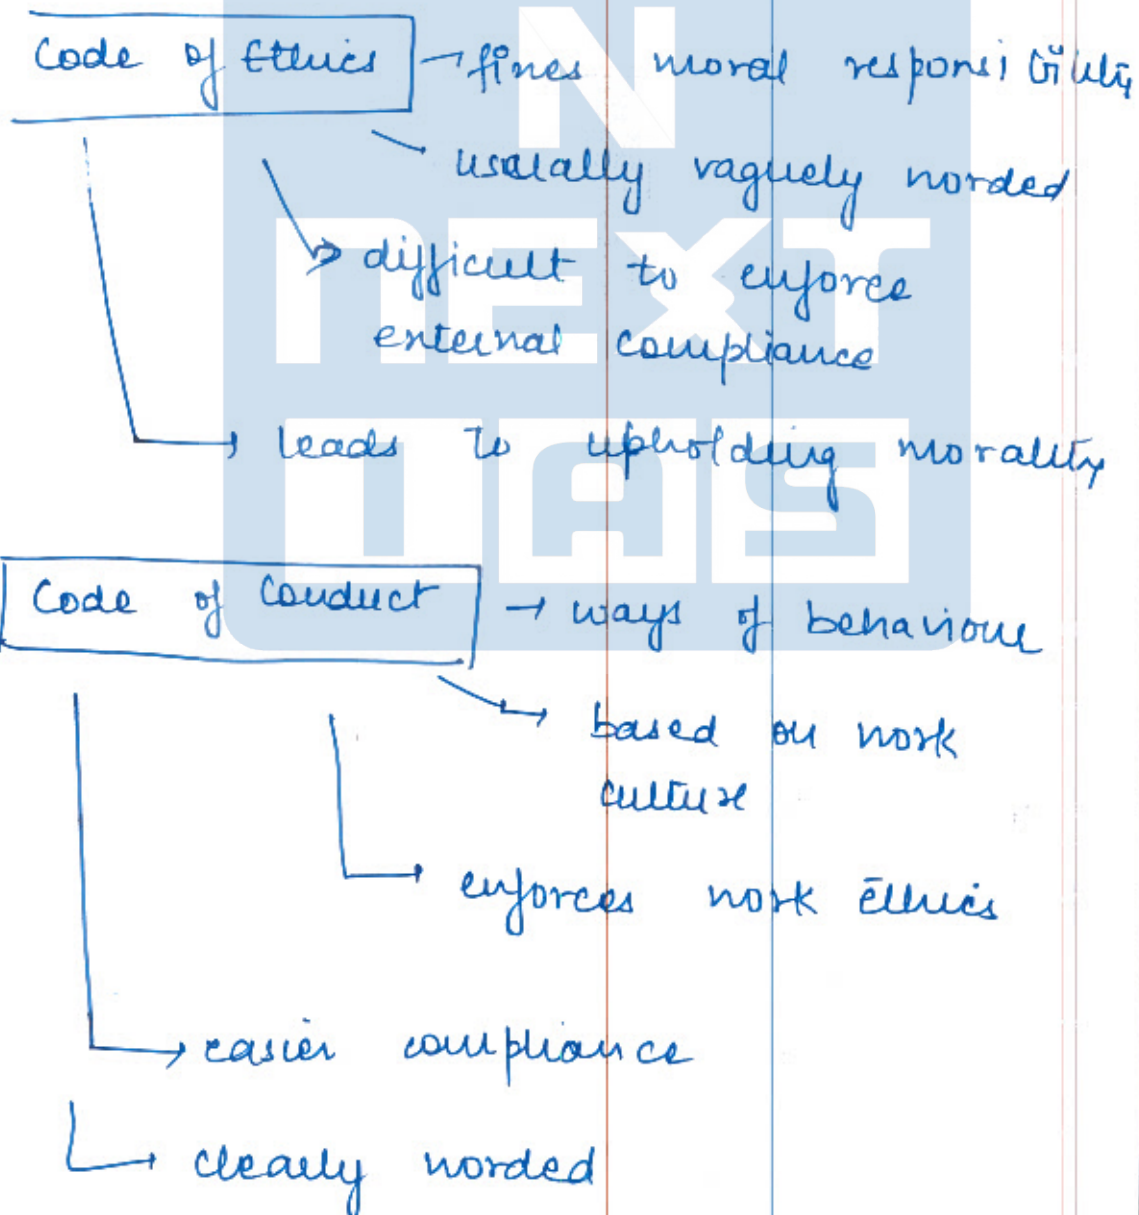 Code of Ethics → fines moral responsibility
usually vaguely worded
→ difficult to enforce
external compliance
→ leads to upholding morality
Code of Conduct → ways of behaviour
→ based on work
culture
→ enforces work ethics
→ easier compliance
→ clearly worded
N
NEXT
IAS